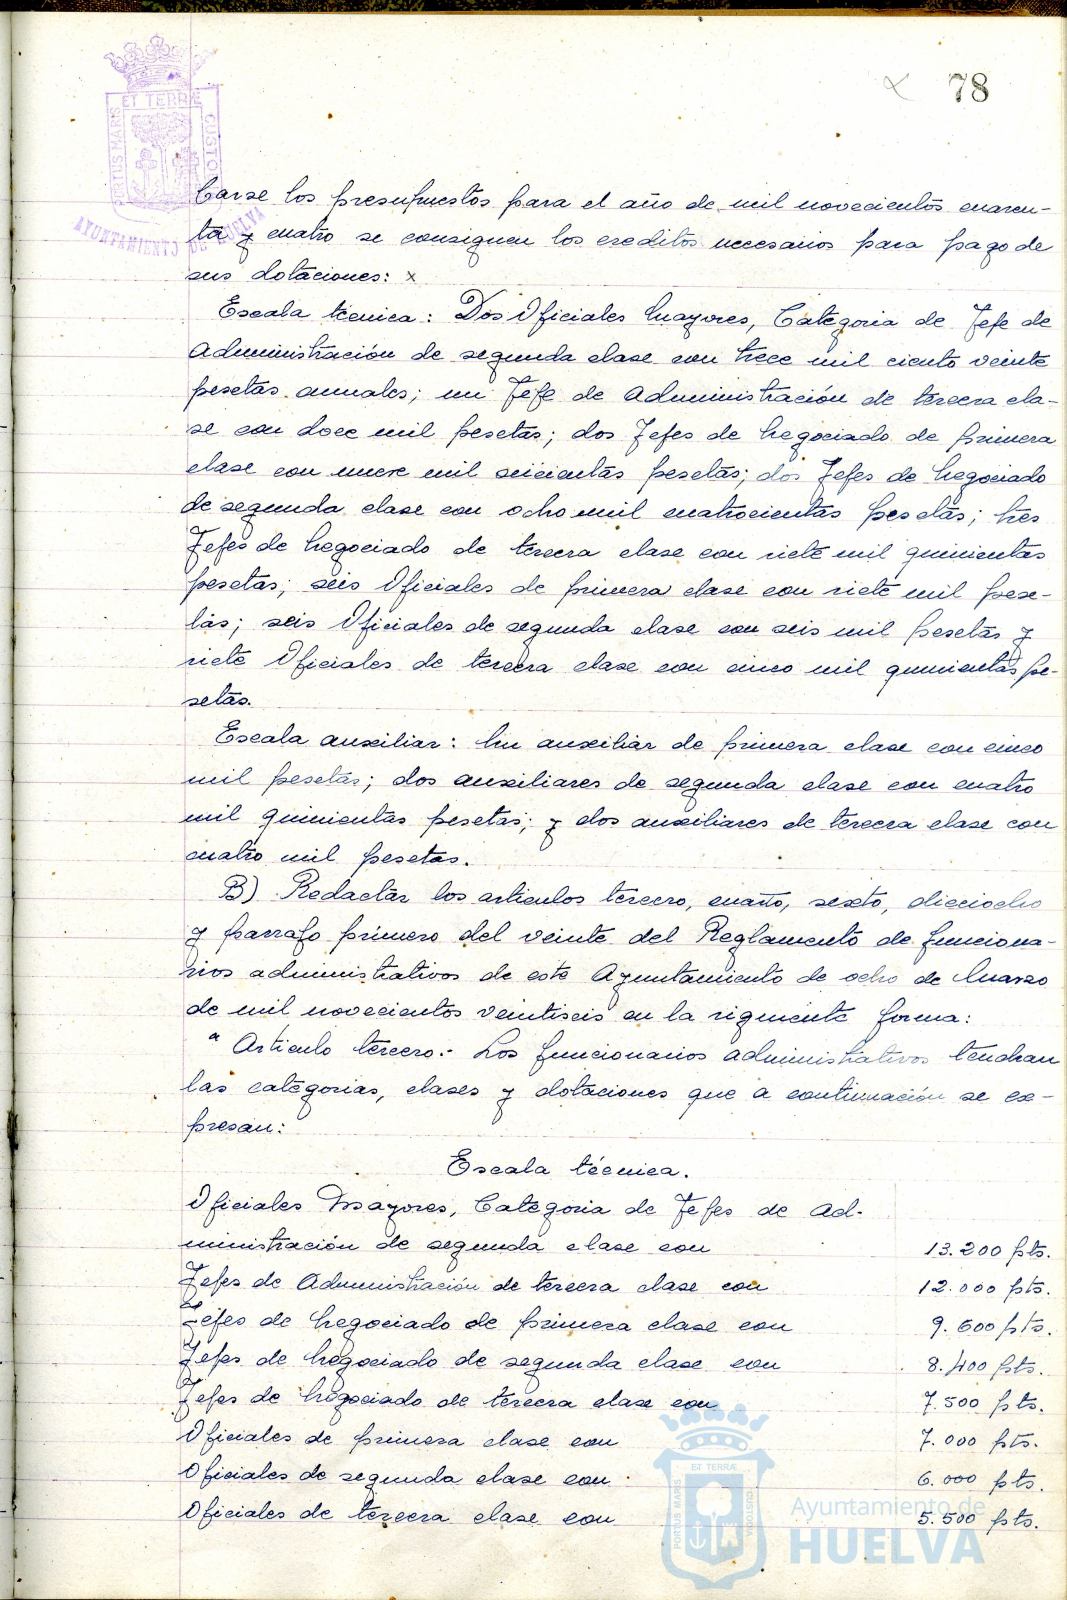 78
ET TERRÆ
PORTUS MARIS
CUSTO
AYUNTAMIENTO DE HUELVA
carse los presupuestos para el año de mil novecientos cuaren-
ta y cuatro se consiguen los creditos necesarios para pago de
sus dotaciones: x
Escala técnica: Dos Oficiales Mayores, Categoria de Jefe de
Administración de segunda clase con trece mil ciento veinte
pesetas anuales; un Jefe de Administración de tercera cla-
se con doce mil pesetas; dos Jefes de Negociado de primera
clase con nueve mil seicientas pesetas; dos Jefes de Negociado
de segunda clase con ocho mil cuatrocientas pesetas; tres
Jefes de Negociado de tercera clase con siete mil quinientas
pesetas; seis Oficiales de primera clase con siete mil pese-
tas; seis Oficiales de segunda clase con seis mil pesetas y
siete Oficiales de tercera clase con cinco mil quinientas pe-
setas.
Escala auxiliar: Un auxiliar de primera clase con cinco
mil pesetas; dos auxiliares de segunda clase con cuatro
mil quinientas pesetas; y dos auxiliares de tercera clase con
cuatro mil pesetas.
B) Redactar los articulos tercero, cuarto, sexto, dieciocho
y parrafo primero del veinte del Reglamento de funciona-
rios administrativos de este Ayuntamiento de ocho de Marzo
de mil novecientos veintiseis en la siguiente forma:
" Articulo tercero:- Los funcionarios administrativos tendran
las categorias, clases y dotaciones que a continuación se ex-
presan:
Escala técnica.
Oficiales Mayores, Categoria de Jefes de Ad-
ministración de segunda clase con 13.200 pts.
Jefes de Administración de tercera clase con 12.000 pts.
Jefes de Negociado de primera clase con 9.600 pts.
Jefes de Negociado de segunda clase con 8.400 pts.
Jefes de Negociado de tercera clase con 7.500 pts.
Oficiales de primera clase con 7.000 pts.
Oficiales de segunda clase con 6.000 pts.
Oficiales de tercera clase con 5.500 pts.
ET TERRÆ
PORTUS MARIS
CUSTODIA
Ayuntamiento de
HUELVA